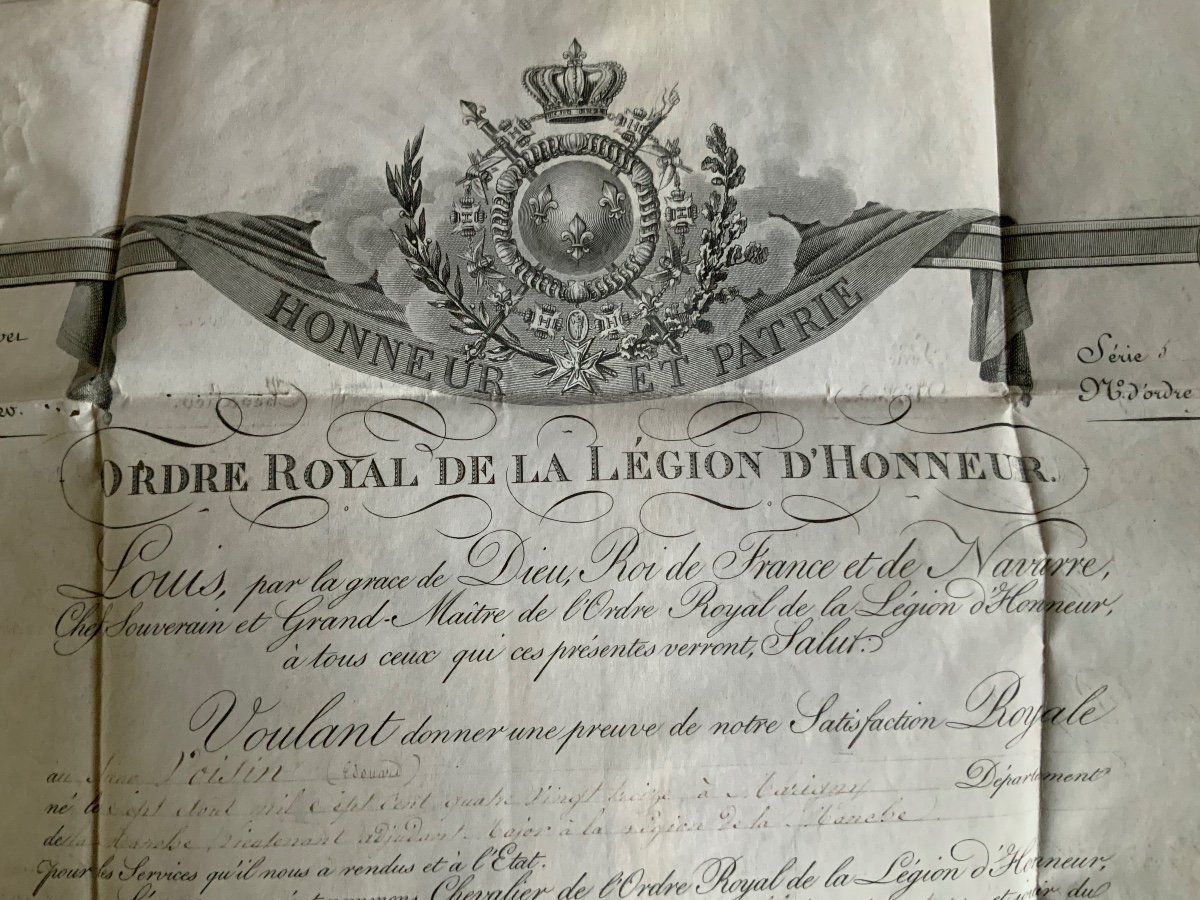 HONNEUR ET PATRIE
Série
N.º d'ordre
ORDRE ROYAL DE LA LÉGION D'HONNEUR.
Louis, par la grace de Dieu, Roi de France et de Navarre,
Chef Souverain et Grand-Maître de l'Ordre Royal de la Légion d'Honneur,
à tous ceux qui ces présentes verront, Salut.
Voulant donner une preuve de notre Satisfaction Royale
au Voisin (Edouard)
né le sept mil sept cent quatre vingt à Marigny Département
de la Manche, Lieutenant adjudant Major à la Légion de la Manche
pour les Services qu'il nous a rendus et à l'Etat.
Chevalier de l'Ordre Royal de la Légion d'Honneur,